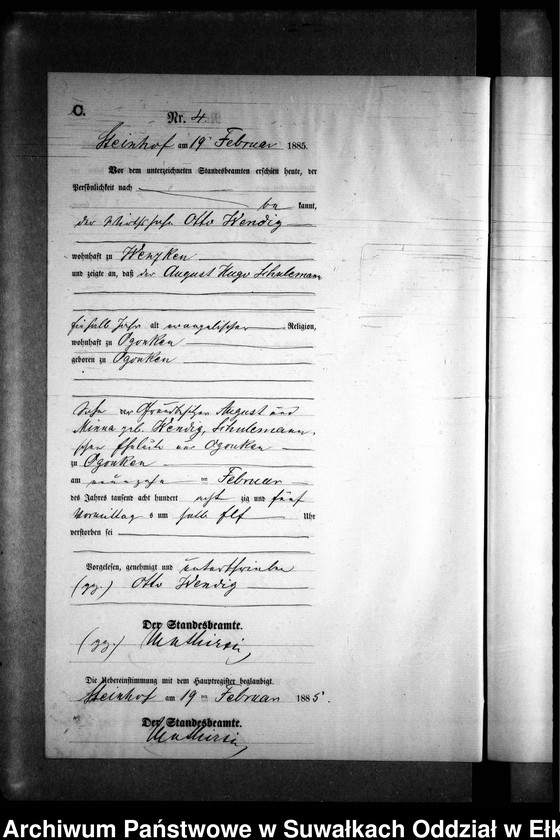 C.
Nr. 4
Steinhof am 19 Februar 1885.
Vor dem unterzeichneten Standesbeamten erschien heute, der
Persönlichkeit nach
be kannt,
der Wirthssohn Otto Wendig
wohnhaft zu Wenzken
und zeigte an, daß der August Hugo Schulemann
ein halb Jahr alt evangelischer Religion,
wohnhaft zu Ogonken
geboren zu Ogonken
Sohn der August und
Minna geb. Wendig, Schulemann-
schen Eheleute aus Ogonken
zu Ogonken
am ten Februar
des Jahres tausend acht hundert acht zig und fünf
Vormittags um halb elf Uhr
verstorben sei
Vorgelesen, genehmigt und unterschrieben
(gez.) Otto Wendig
Der Standesbeamte.
(gez.)
Die Uebereinstimmung mit dem Hauptregister beglaubigt.
Steinhof am 19 ten Februar 1885.
Der Standesbeamte.
Archiwum Państwowe w Suwałkach Oddział w Ełk